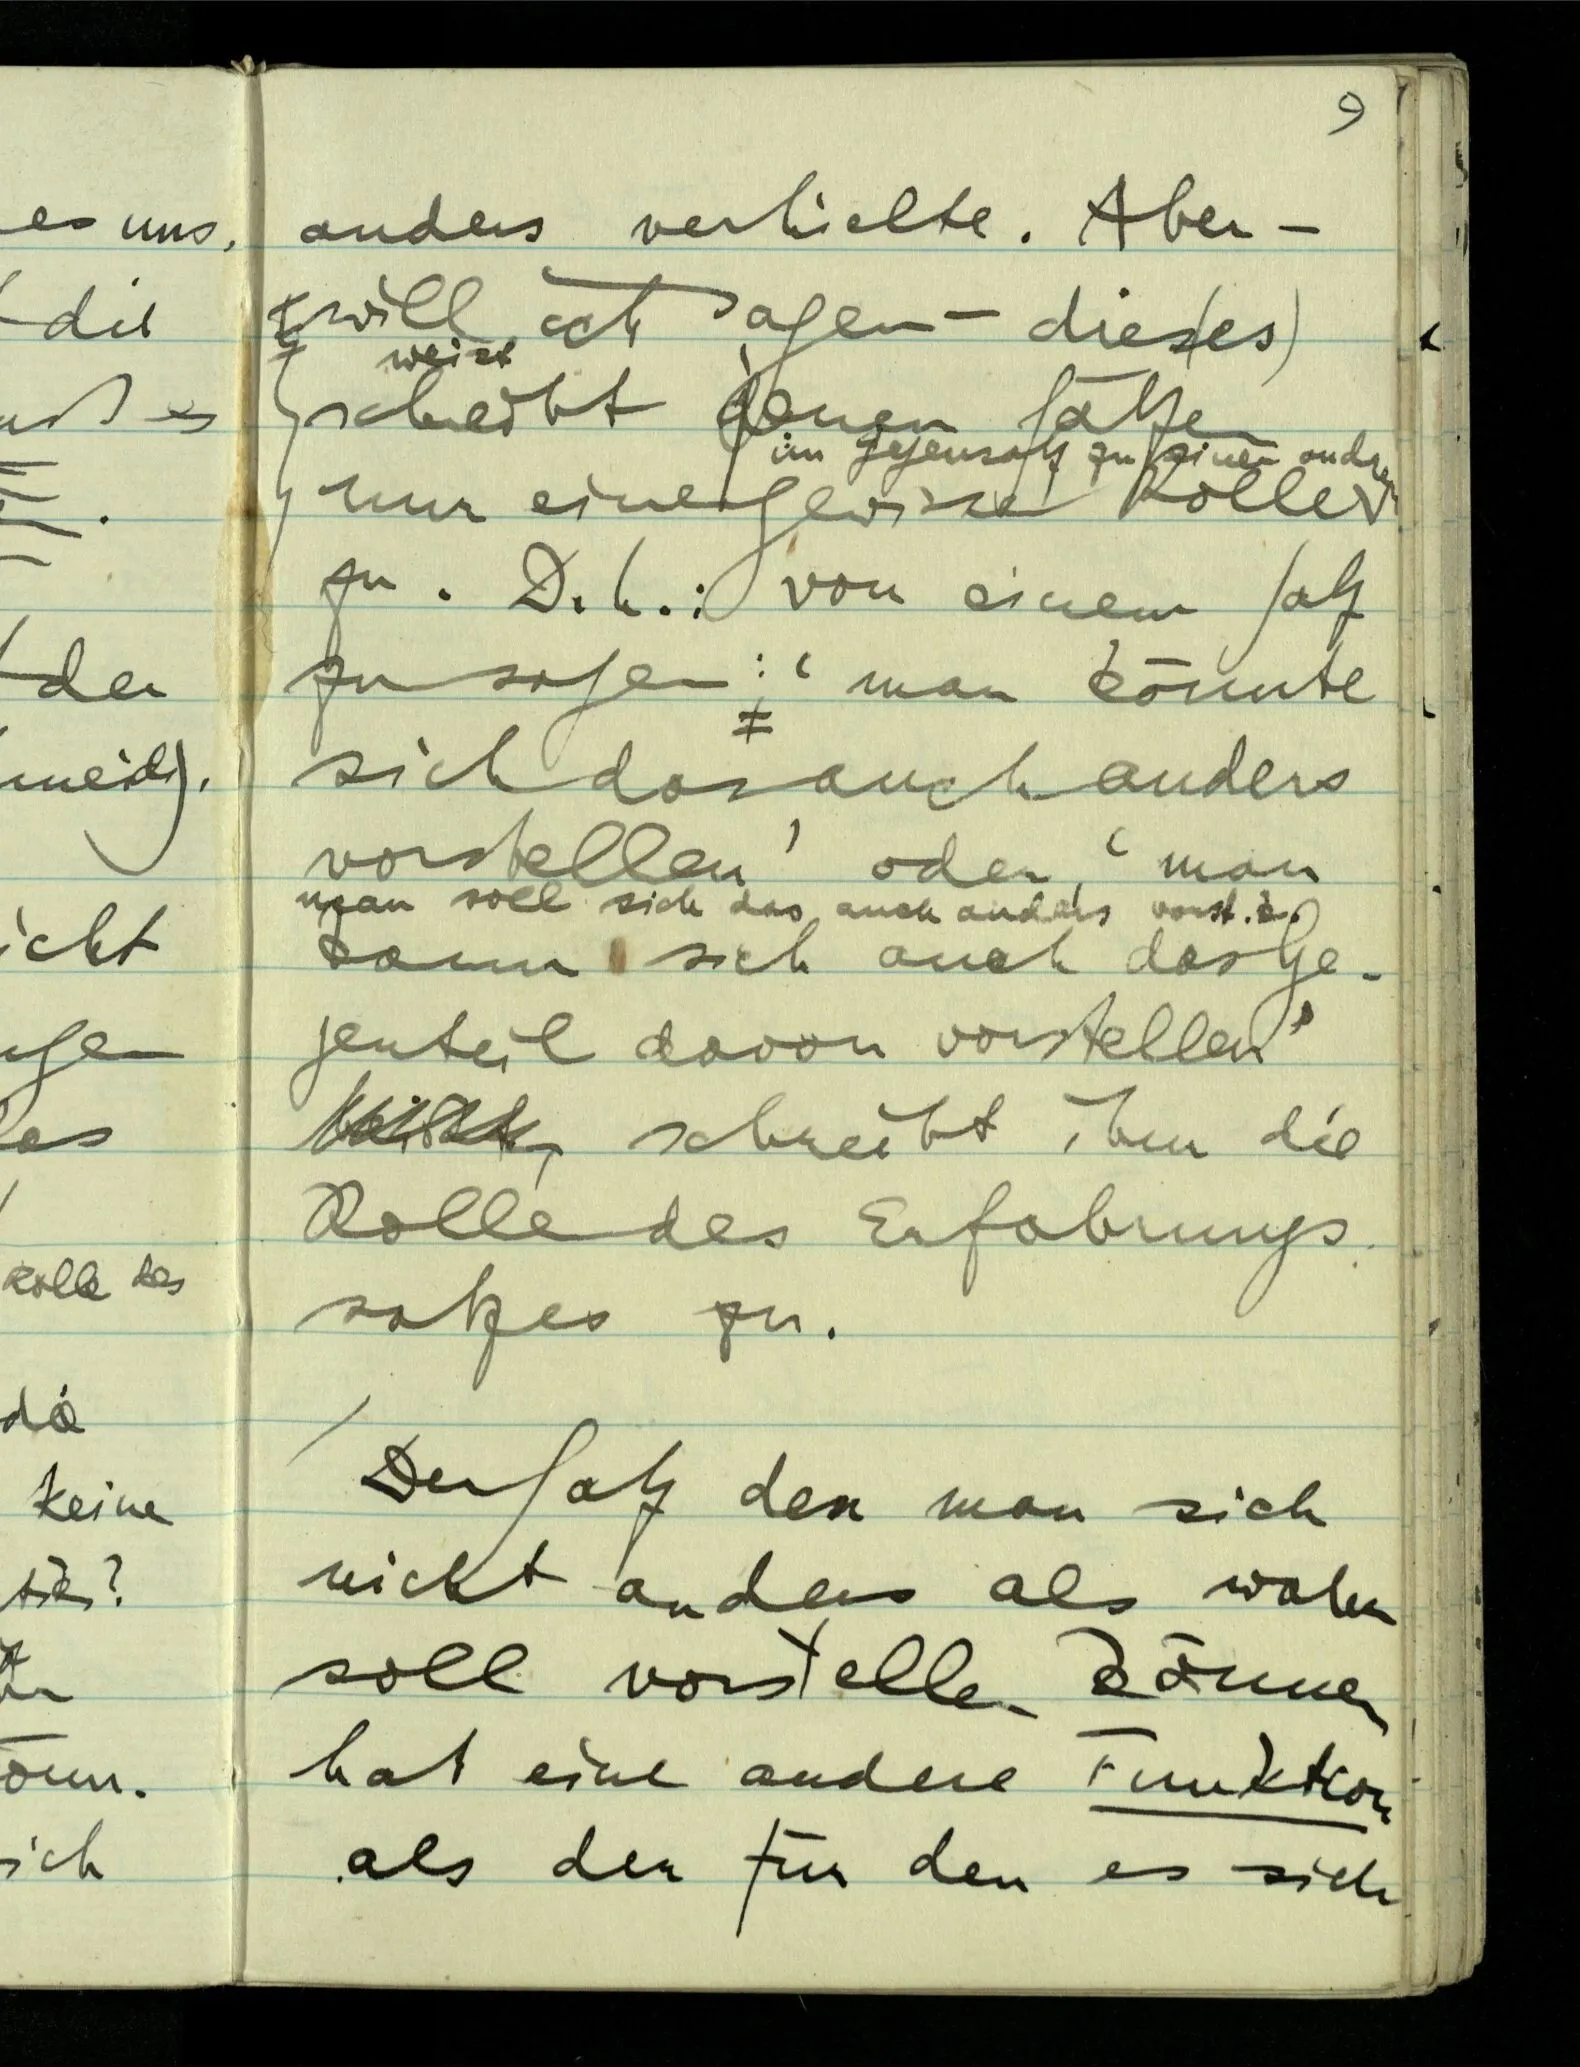 9
es uns,
die
es
der
icht
es
Rolle des
die
keine
sie?
ich
anders verhielte. Aber –
will ich sagen – dies(es)
weist
schreibt jenen Sätzen
im Gegensatz zu einer andren
nur eine gewisse Rolle
zu. D.h.: von einem Satz
zu sagen: ‘man könnte
sich das auch anders
vorstellen’ oder ‘man
man soll sich das auch anders vorst. k.
kann sich auch das Ge-
genteil davon vorstellen’
schreibt ihm die
Rolle des Erfahrungs-
satzes zu.
/ Der Satz den man sich
nicht anders als wahr
soll vorstellen können
hat eine andere Funktion
als der für den es sich